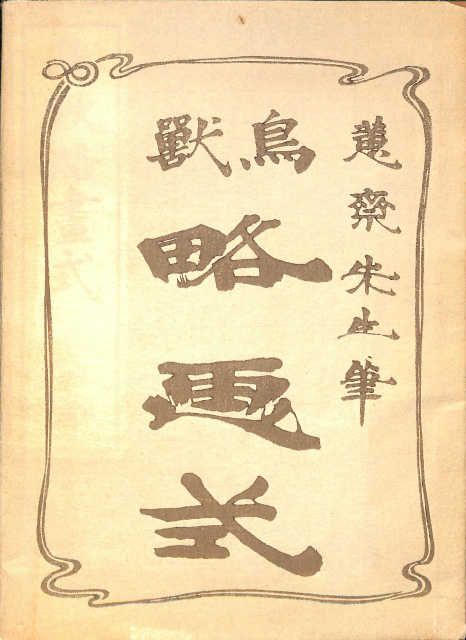 蕙齋先生筆
鳥獸
略画式